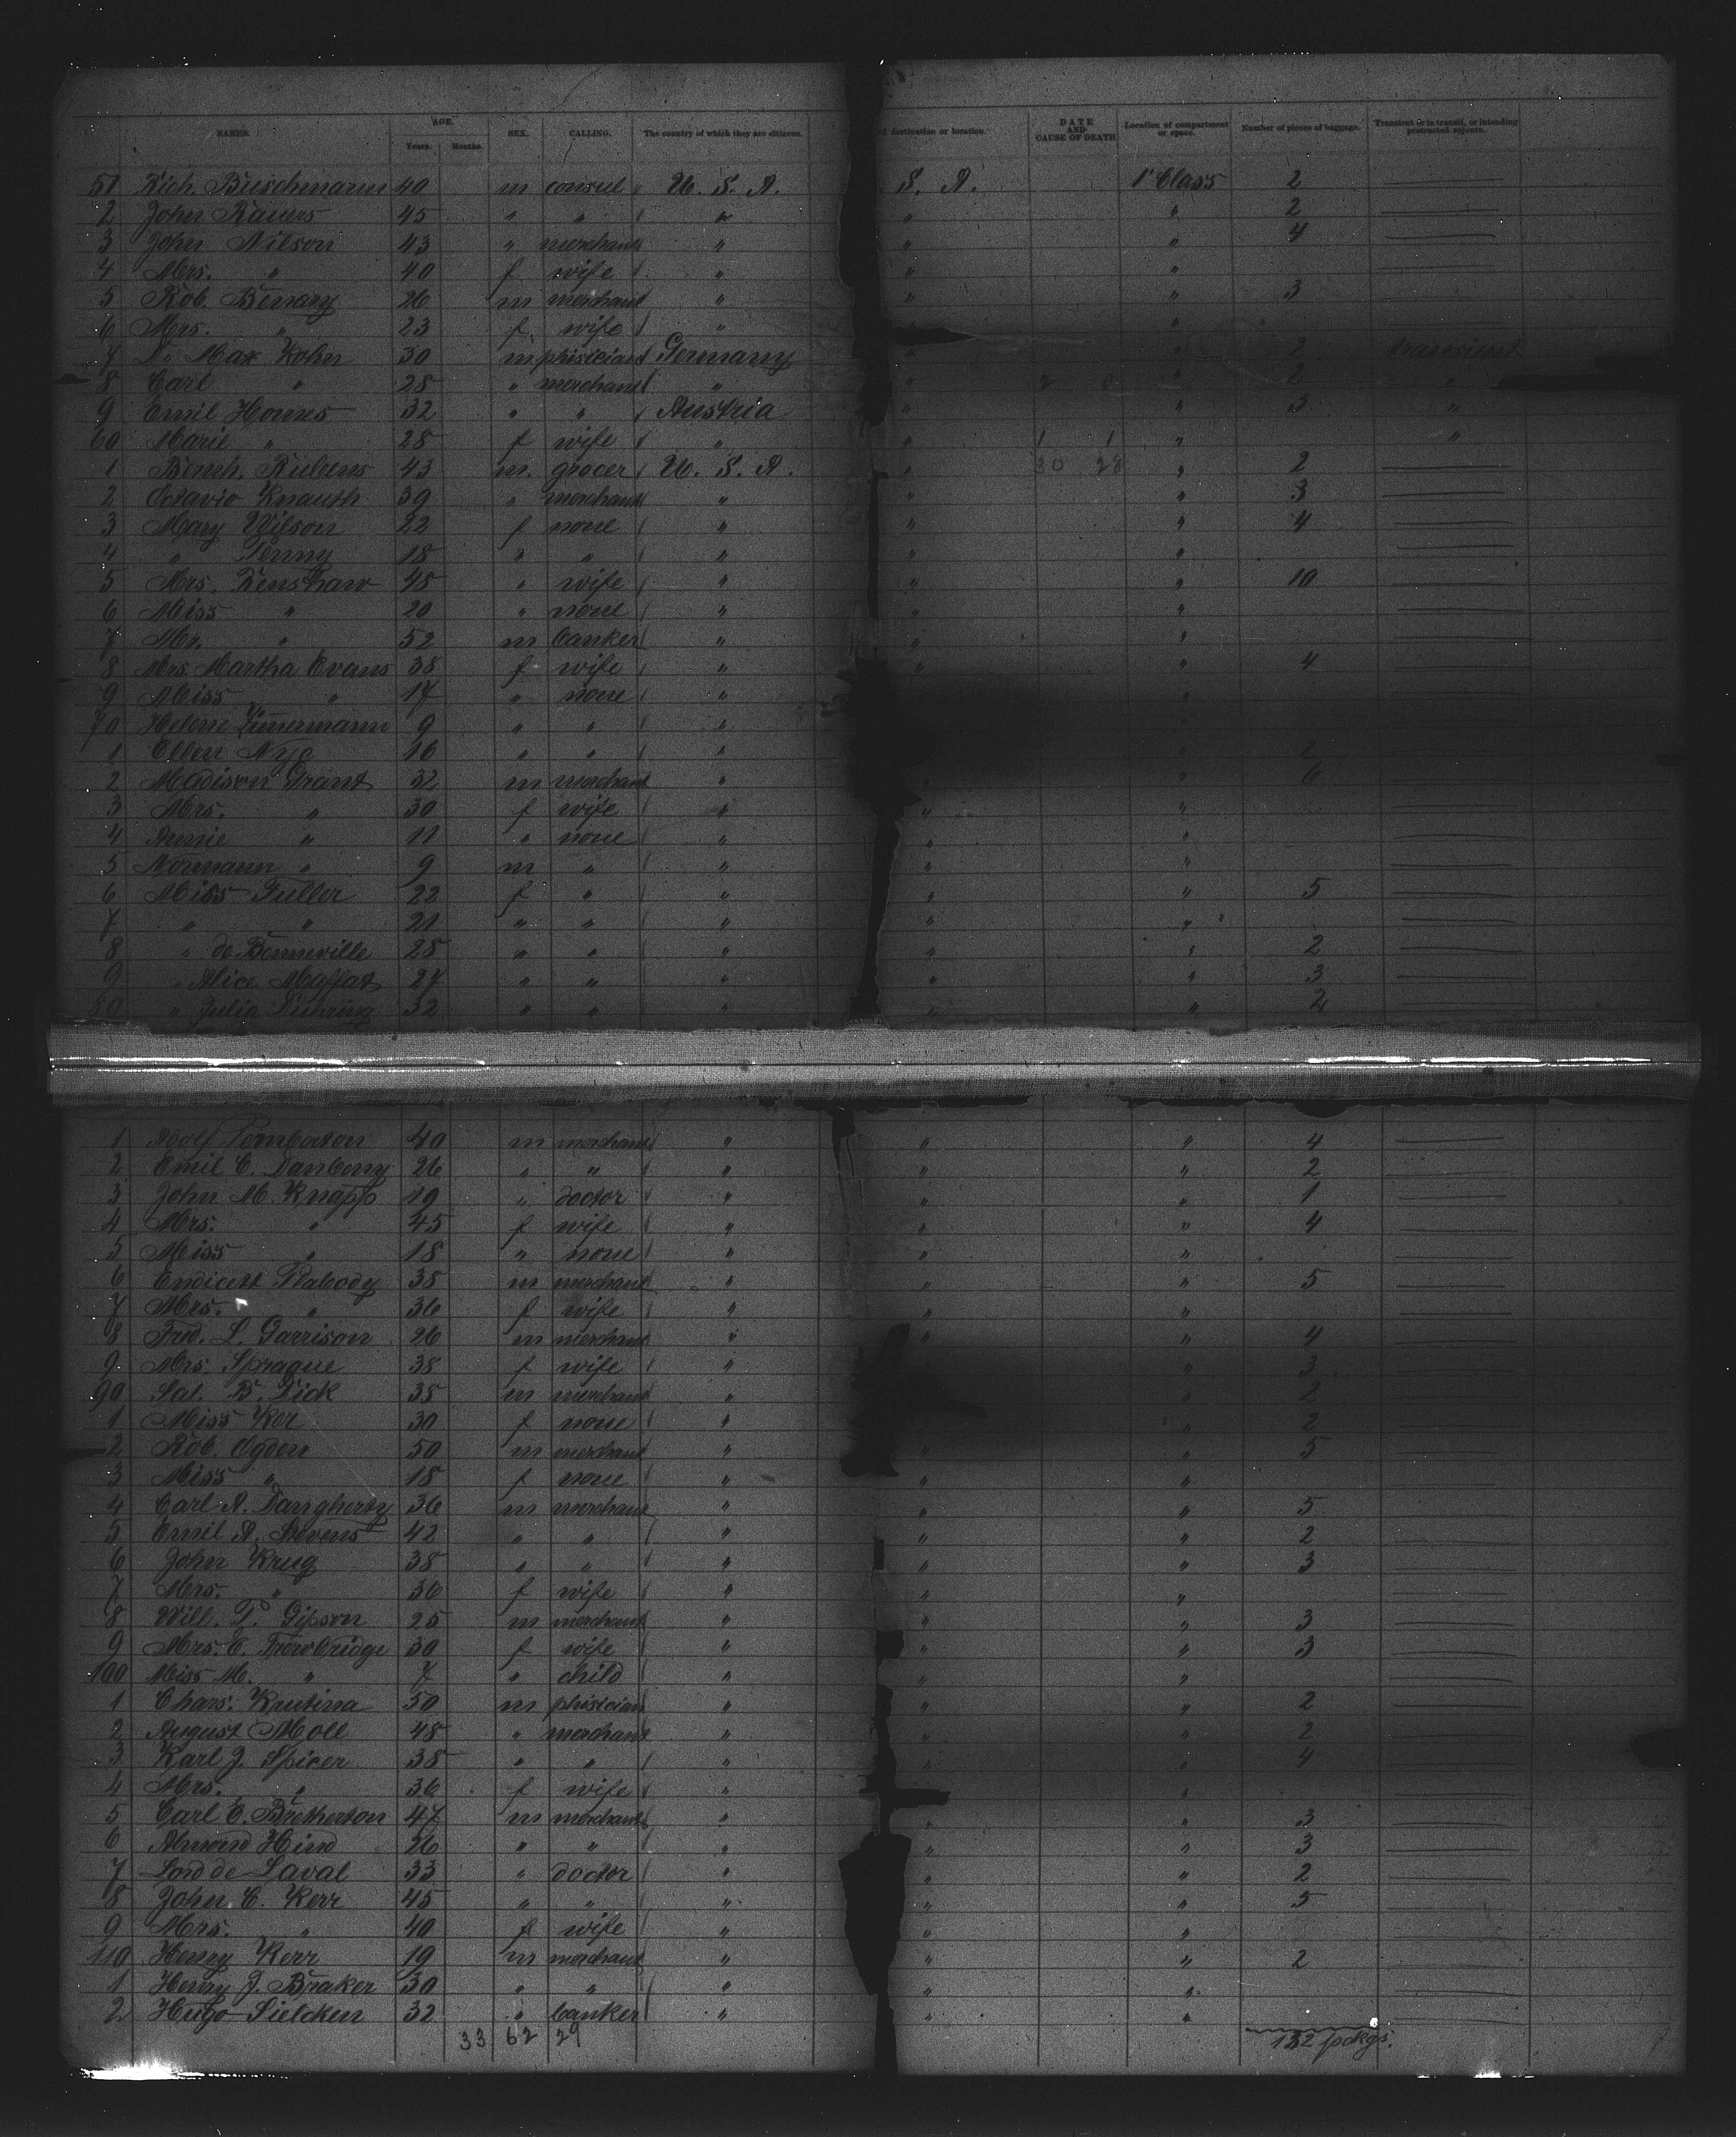 NAMES. AGE. Years. Months. SEX. CALLING. The country of which they are citizens. destination or location. DATE AND CAUSE OF DEATH Location of compartment or space. Number of pieces of baggage. Transient or in transit, or intending protracted sojourn.
51 Rich. Buschmann 40 m consul U. S. A. S. A. 1' Class 2
2 John Rauers 45 " " " " " 2
3 John Nilson 43 " merchant " " " 4
4 Mrs. " 40 f wife " " "
5 Rob. Benary 26 m merchant " " " 3
6 Mrs. " 23 f wife " " "
7 Dr. Max Kohn 30 m phisician Germany " " 2 transient
8 Carl " 28 " merchant " " " 2 "
9 Emil Homes 32 " " Austria " " 3 "
60 Marie " 28 f wife " " " "
1 Bernh. Rubens 43 m. grocer U. S. A. " " 2
2 Octavio Knauth 39 " merchant " " " 3
3 Mary Wilson 22 f none " " " 4
4 " Penny 18 " " " " "
5 Mrs. Renshaw 48 " wife " " " 10
6 Miss " 20 " none " " "
7 Mr. " 52 m banker " " "
8 Mrs. Martha Evans 38 f wife " " " 4
9 Miss " 17 " none " "
70 Helene Zimmermann 9 " " "
1 Ellen Nye 16 " " " 2
2 Madison Grant 32 m merchant " " 6
3 Mrs. " 30 f wife " " "
4 Annie " 11 " none " " "
5 Normann " 9 m " " " "
6 Miss Fuller 22 f " " " " 5
7 " " 21 " " " " "
8 " de Bonneville 28 " " " " " 2
9 " Alice Maffat 27 " " " " " 3
80 " Julia 32 " " " " " 2
1 Adolf Pemberton 40 m merchant " " " 4
2 Emil C. Danberry 26 " " " " " 2
3 John M. Knapp 19 " doctor " " " 1
4 Mrs. " 45 f wife " " " 4
5 Miss " 18 " none " " "
6 Endicott Peabody 38 m merchant " " " 5
7 Mrs. " 36 f wife " " "
8 Fred. L. Garrison 26 m merchant " " " 4
9 Mrs. Sprague 38 f wife " " 3
90 Sal. B. Dick 38 m merchant " " 2
1 Miss Ker 30 f none " " 2
2 Rob. Ogden 50 m merchant " " " 5
3 Miss " 18 f none " " "
4 Carl A. Daugherty 36 m merchant " " " 5
5 Emil A. Stevens 42 " " " " " 2
6 John Krug 38 " " " " " 3
7 Mrs. " 36 f wife " " "
8 Will. P. Gipson 25 m merchant " " " 3
9 Mrs. E. Trowbridge 30 f wife " " " 3
100 Miss M. " 7 " child " " "
1 Chars. Krutina 50 m phisician " " " 2
2 August Moll 48 " merchant " " " 2
3 Karl J. Spicer 38 " " " " " 4
4 Mrs. " 36 f wife " " "
5 Carl E. Bretherton 47 m merchant " " " 3
6 Almond Hind 26 " " " " " 3
7 de Laval 33 " doctor " " " 2
8 John C. Kerr 45 " " " " " 5
9 Mrs. " 40 f wife " " "
110 Henry Kerr 19 m merchant " " " 2
1 Henry J. Braker 30 " " " " "
2 Hugo Sielcken 32 " banker " " "
33 62 29 132 pckgs.